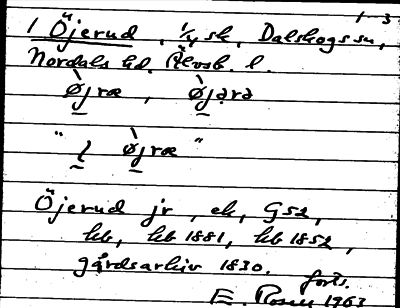 1-3
1 Öjerud, 1/4 sk, Dalskogs sn,
Nordals hd. Älvsb. l.
ø̀jræ, ø̀jərə
" ı̰ ø̀jræ "
Öjerud jr, ek, G52,
kb, kb 1881, kb 1852,
gårdsarkiv 1830.
forts.
E. Rosen 1963